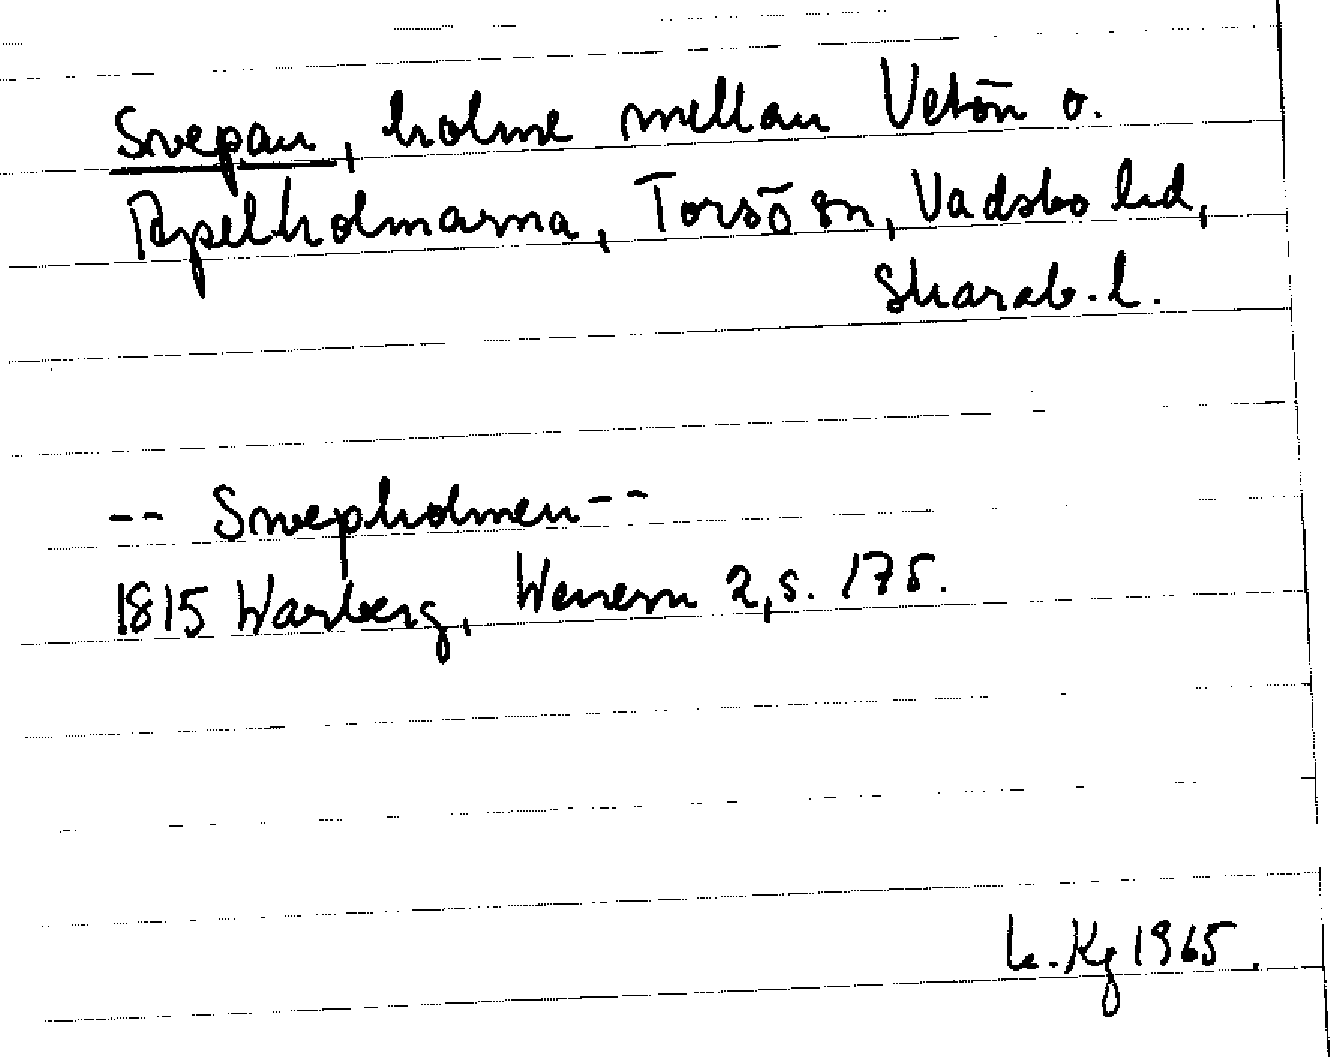 Svepan, holme mellan Vetön o.
Rypelholmarna, Torsö sn, Vadsbo hd,
Skarab. l.
-- Svepholmen --
1815 Warberg, Wenern 2, s. 175.
k. Kg 1965.